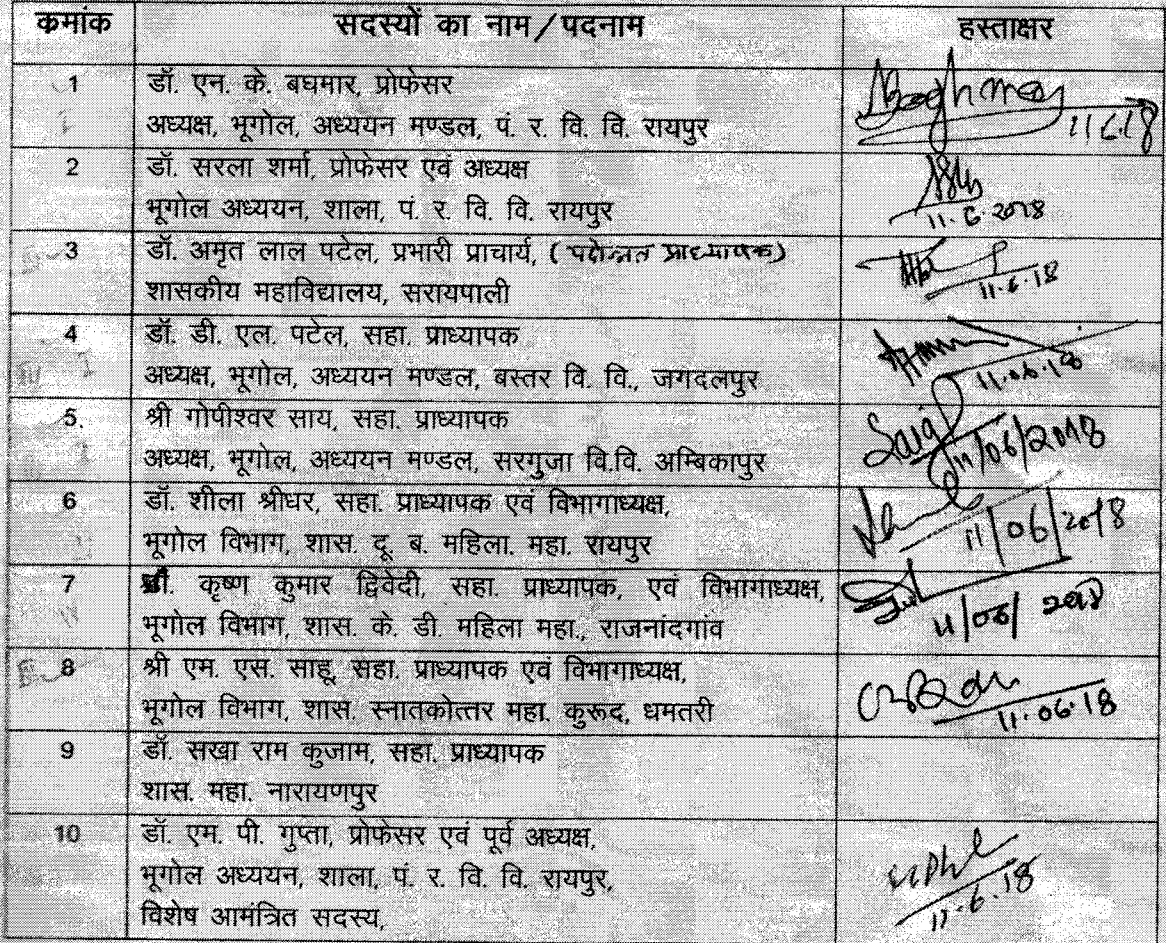 कमांक सदस्यों का नाम / पदनाम हस्ताक्षर
1 डॉ. एन. के. बघमार, प्रोफेसर
अध्यक्ष, भूगोल, अध्ययन मण्डल, पं. र. वि. वि. रायपुर
11.6.18
2 डॉ. सरला शर्मा, प्रोफेसर एवं अध्यक्ष
भूगोल अध्ययन, शाला, पं. र. वि. वि. रायपुर
11.6.2018
3 डॉ. अमृत लाल पटेल, प्रभारी प्राचार्य, (पदोन्नत प्राध्यापक)
शासकीय महाविद्यालय, सरायपाली
11.6.18
4 डॉ. डी. एल. पटेल, सहा. प्राध्यापक
अध्यक्ष, भूगोल, अध्ययन मण्डल, बस्तर वि. वि., जगदलपुर
11.06.18
5. श्री गोपीश्वर साय, सहा. प्राध्यापक
अध्यक्ष, भूगोल, अध्ययन मण्डल, सरगुजा वि.वि. अम्बिकापुर
11/06/2018
6 डॉ. शीला श्रीधर, सहा. प्राध्यापक एवं विभागाध्यक्ष,
भूगोल विभाग, शास. दू. ब. महिला. महा. रायपुर
11/06/2018
7 कृष्ण कुमार द्विवेदी, सहा. प्राध्यापक, एवं विभागाध्यक्ष,
भूगोल विभाग, शास. के. डी. महिला महा., राजनांदगांव
11/06/2018
8 श्री एम. एस. साहू, सहा. प्राध्यापक एवं विभागाध्यक्ष,
भूगोल विभाग, शास. स्नातकोत्तर महा. कुरूद, धमतरी
11.06.18
9 डॉ. सखा राम कुजाम, सहा. प्राध्यापक
शास. महा. नारायणपुर
10 डॉ. एम. पी. गुप्ता, प्रोफेसर एवं पूर्व अध्यक्ष,
भूगोल अध्ययन, शाला, पं. र. वि. वि. रायपुर,
विशेष आमंत्रित सदस्य,
11.6.18